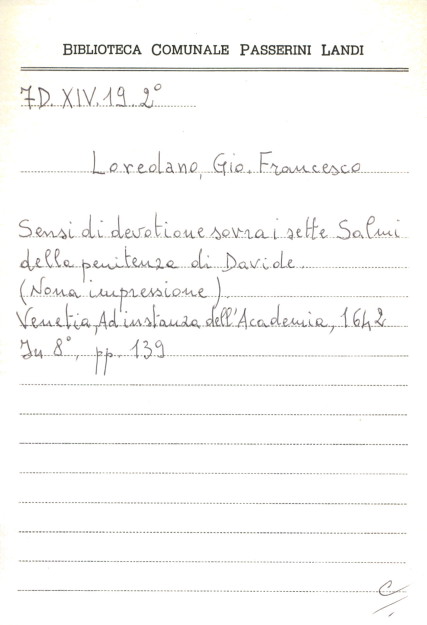 BIBLIOTECA COMUNALE PASSERINI LANDI
7D. XIV. 19. 2°
Loredano, Gio. Francesco
Sensi di devotione sovra i sette Salmi
della penitenza di Davide.
(Nona impressione).
Venetia, Ad instanza dell'Academia, 1642
In 8°, pp. 139
C